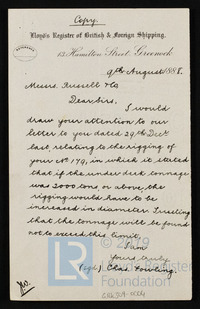 Copy.
Lloyd's Register of British & Foreign Shipping.
13 Hamilton Street Greenock
9th August 1888.
Messrs. Russell & Co
Dear Sirs,
I would
draw your attention to our
letter to you dated 29th Decr
last, relating to the rigging of
your No 179, in which it stated
that if the under deck tonnage
was 2000 tons or above, the
rigging would have to be
increased in diameter. Trusting
that the tonnage will be found
not to exceed this limit,
I am
Yours truly
(sgd) Chas Fowling.
© 2019
Lloyd's Register
Foundation